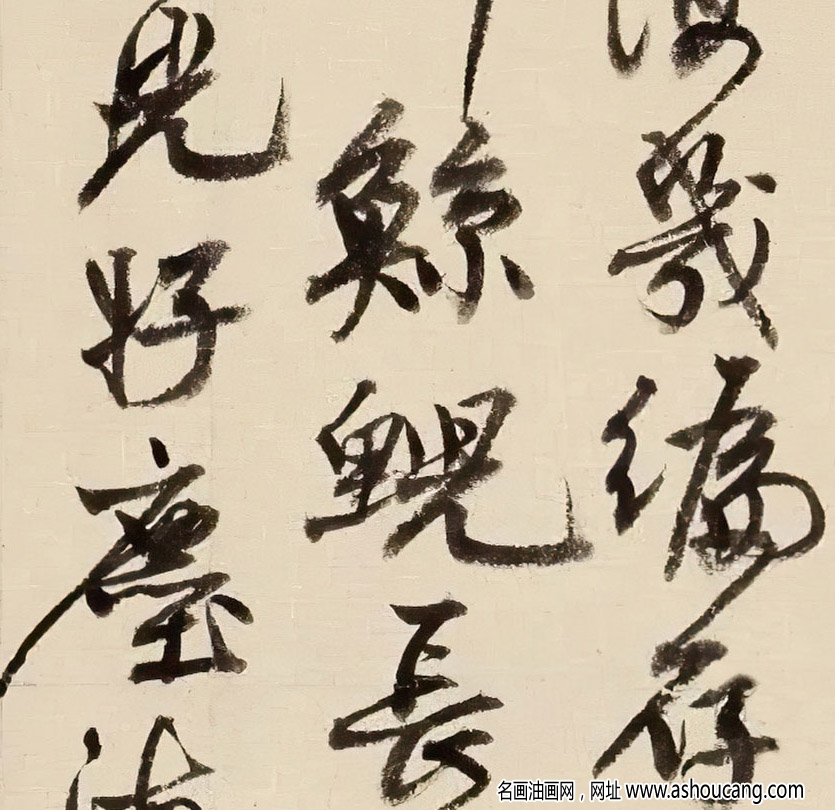 幾編存
鯨鯢長
好塵
名画油画网，网址 www.ashoucang.com